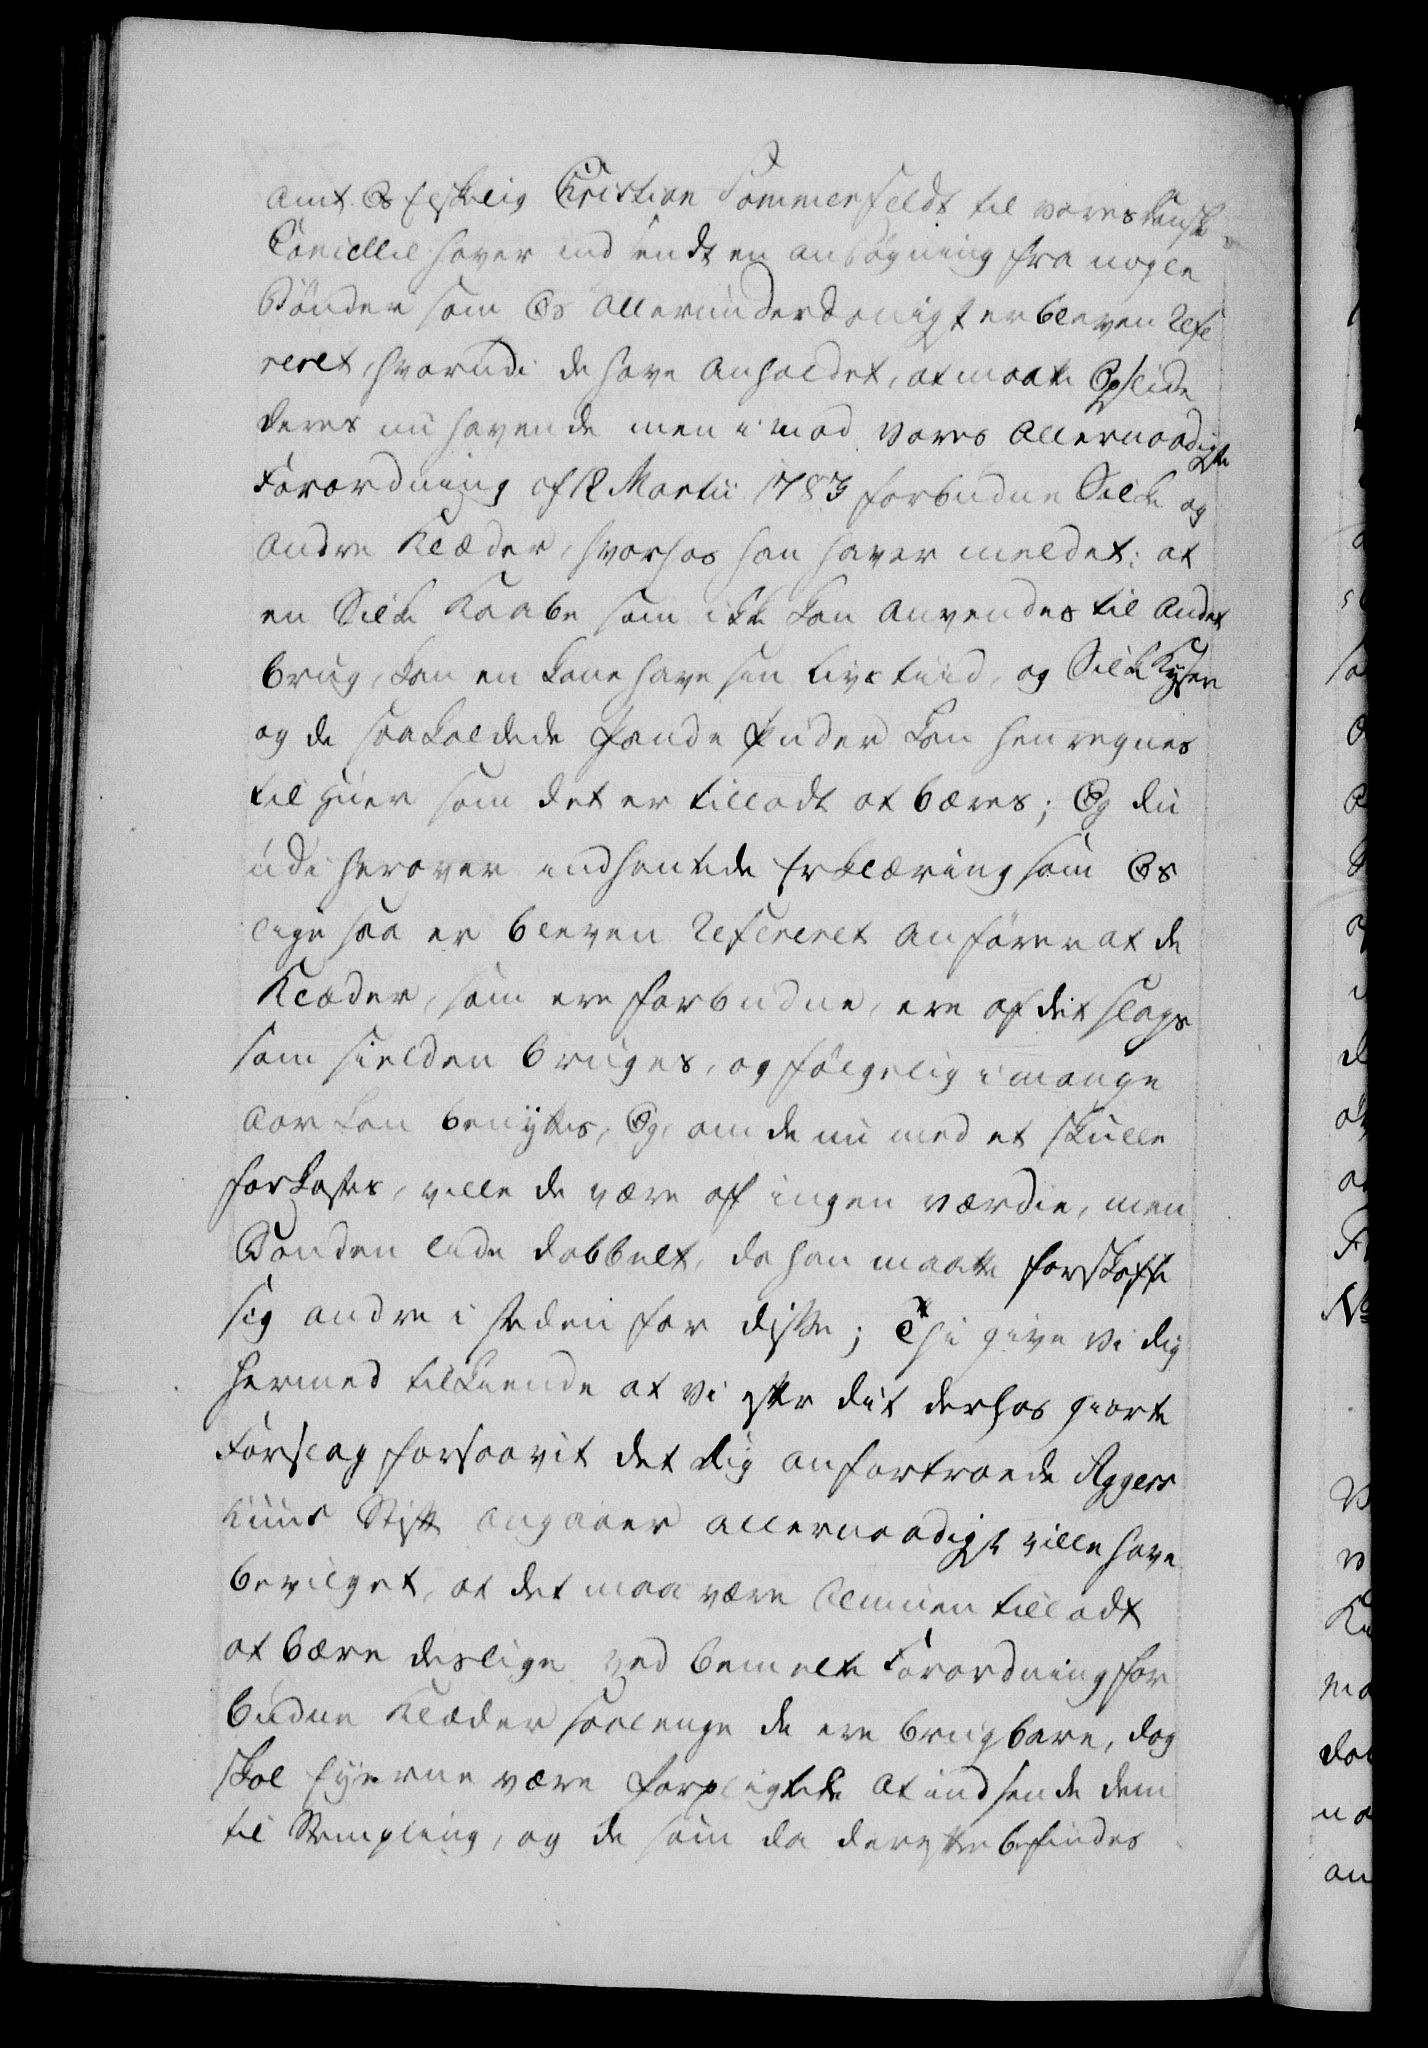 Amt Os Elskelig Christian Sommerfeldt til vores danske
Cancellie haver indsendt en ansøgning fra nogle
Bønder som Os allerunderdanigst er bleven Refe
reret, hvorudi de have anholdet, at maatte Opslide
deres nu havende men imod vores Allernaadigste
Forordning af 12 Martii 1783 forbudne Silke og
andre Klæder, hvorhos han haver meldet: at
en Silke Kaabe som ikke kan anvendes til andet
brug, kan en kone have sin livs tiid, og Silke Kyser
og de saakaldede Pande Puder kan henregnes
til Huer som det er tilladt at bæres; Og du
udi herover indhentede Erklæring som Os
lige saa er bleven Refereret anfører at de
Klæder, som ere forbudne, ere af dit slags
som sielden bruges, og følgelig i mange
Aar kan benyttes, Og, om de nu med et skulle
forkastes, ville de være af ingen værdie, men
Bonden lide dobbelt, da han maatte forskaffe
sig andre i steden for disse; Thi give vi dig
hermed tilkiende at vi efter dit derhos giorte
Forslag forsaavit det dig anfortroede Agger
huus Stift angaaer allernaadigst ville have
bevilget, at det maa være Almuen tilladt
at bære deslige ved bemelte Forordning for
budne Klæder saalenge de ere brugbare, dog
skal Eyerne være forpligtede at indsende dem
til Stempling, og de som da derefter befindes